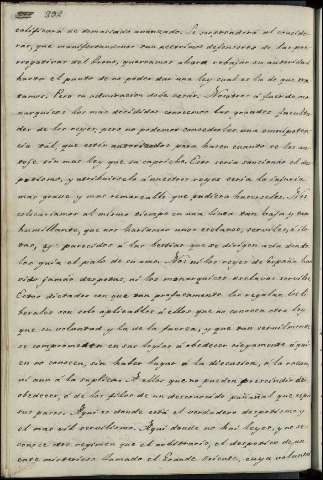 332
calificará de demasiado avanzado. Se sorprenderá al conside-
rar, que manifestandonos tan acerrimos defensores de las pre-
rrogativas del trono, queramos ahora rebajar su autoridad
hasta el punto de no poder dar una ley cual es la de que tra-
tamos. Pero su admiracion debe cesar. Nosotros á fuer de mo-
narquicos los mas decididos conocemos las grandes faculta-
des de los reyes, pero no podemos concederles una omnipoten-
cia tal, que estén autorizados para hacer cuanto se les an-
toje sin mas ley que su capricho. Esto seria sancionar el des-
potismo, y atribuirselo á nuestros reyes seria la injuria
mas grave y mas remarcable que pudiera hacerseles. Nos
colocariamos al mismo tiempo en una linea tan baja y tan
humillante, que nos hariamos unos esclavos, serviles, ó ilo-
tas, y parecidos á las bestias que se dirigen á donde
las guia el palo de su amo. Ni los reyes de España han
sido jamás despotas, ni los monarquicos esclavos serviles.
Estos dictados con que tan profusamente les regalan los li-
berales son solo aplicables á ellos que no conocen otra ley
que su voluntad y la de la fuerza, y que tan servilmente
se comprometen en sus logias á obedecer ciegamente á qui-
en no conocen, sin haber lugar á la discusion, á la razon,
ni aun á la suplica. A ellos que no pueden prescindir de
obedecer, ó de los filos de un desconocido puñal que espia
sus pasos. Aqui es donde está el verdadero despotismo y
el mas vil servilismo. Aqui donde no hai leyes, y no se
conoce otro regimen que el arbitrario, el despotico de un
ente misterioso llamado el Grande Oriente, cuya voluntad